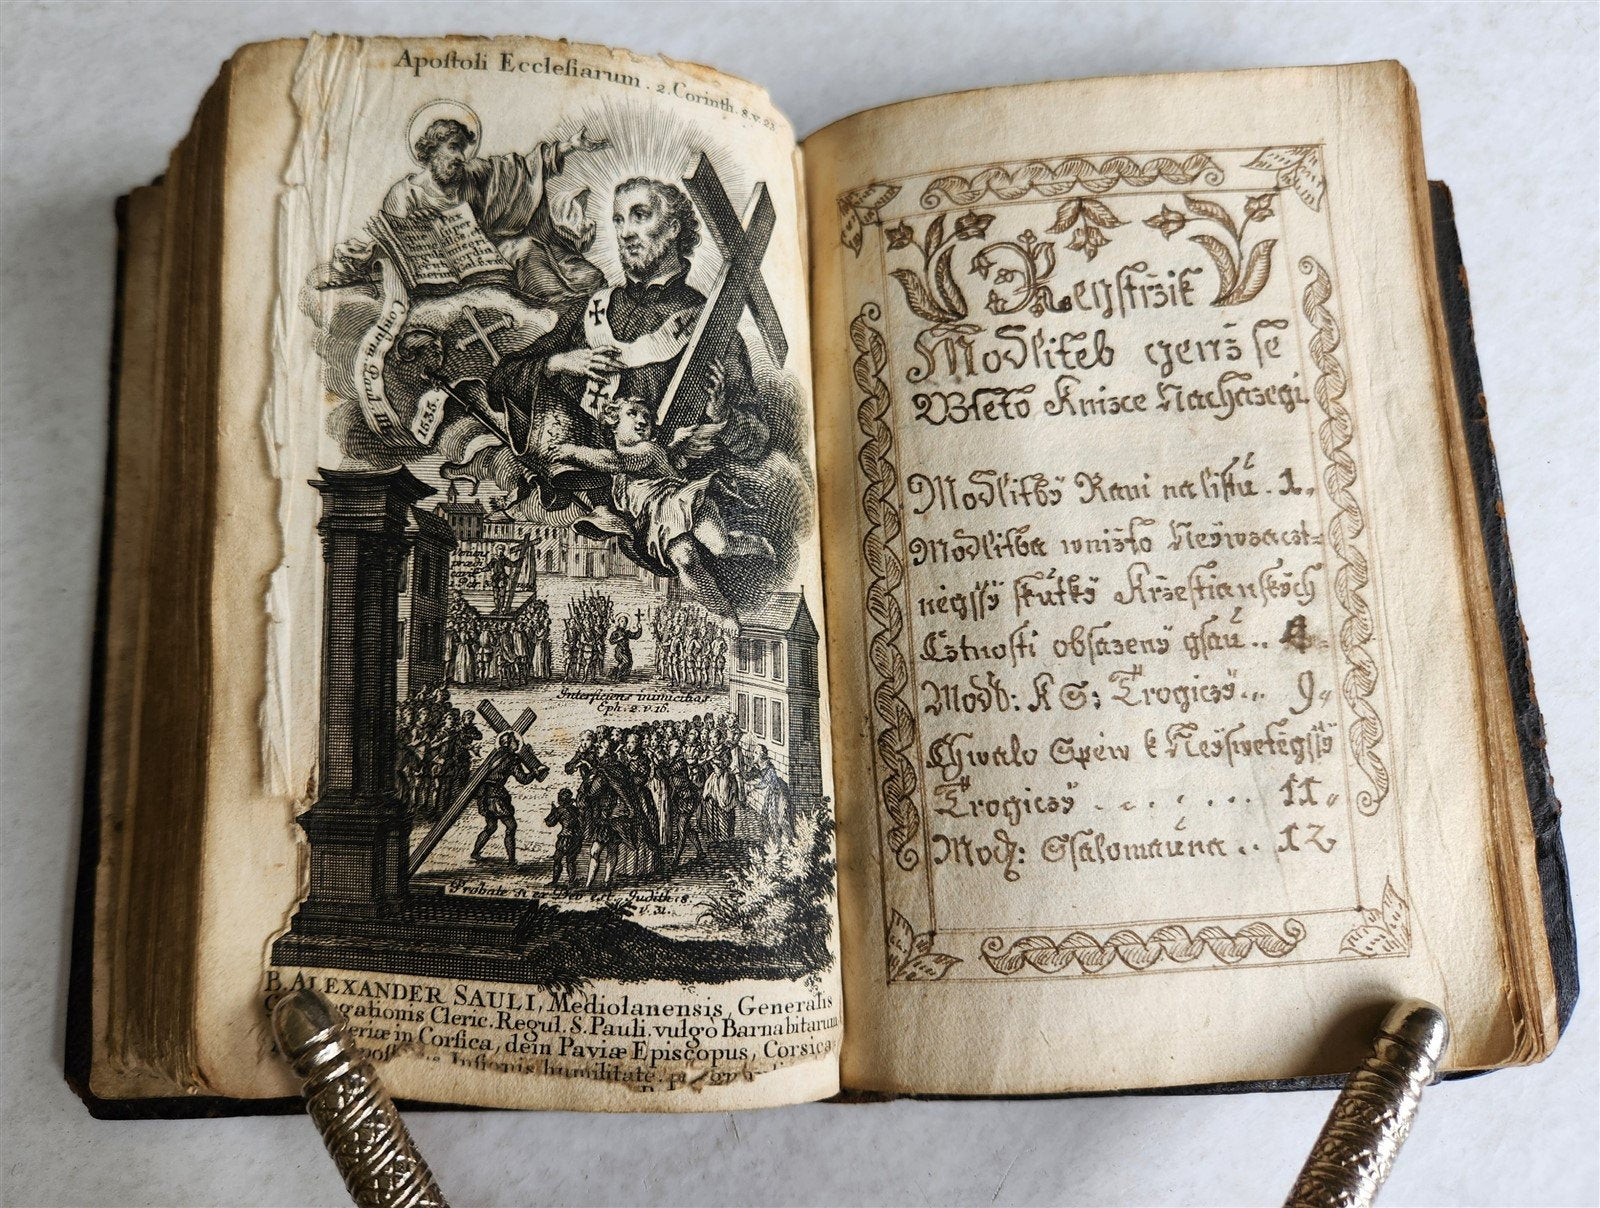 Apoſtoli Eccleſiarum . 2. Corinth. 8. v. 23
Confirm. Paul. III
1535.
Interficiens inimicitias
Eph. 2. v. 16.
Probate si ex Deo est, Judith. 8.
v. 31.
B. ALEXANDER SAULI, Mediolanensis, Generalis
gationis Cleric. Regul. S. Pauli, vulgò Barnabitarum
in Corſica, dein Paviæ Epiſcopus, Corsicæ
humilitate
Regſtržik
Modliteb genž ſe
Wleto Knizce Nachazegi.
Modlitby Rani na liſtu . 1.
Modlitba wnižto Neywzaczt=
negſſy ſkutky Kržeſtianſkych
Cztnoſti obſazeny gſau ..
Modb: K S: Trogiczy .. 9.
Chwalo Spěw k Neyſwetěgſſy
Trogiczy . . . . . . 11.
Modl: Sſalomauna .. 12